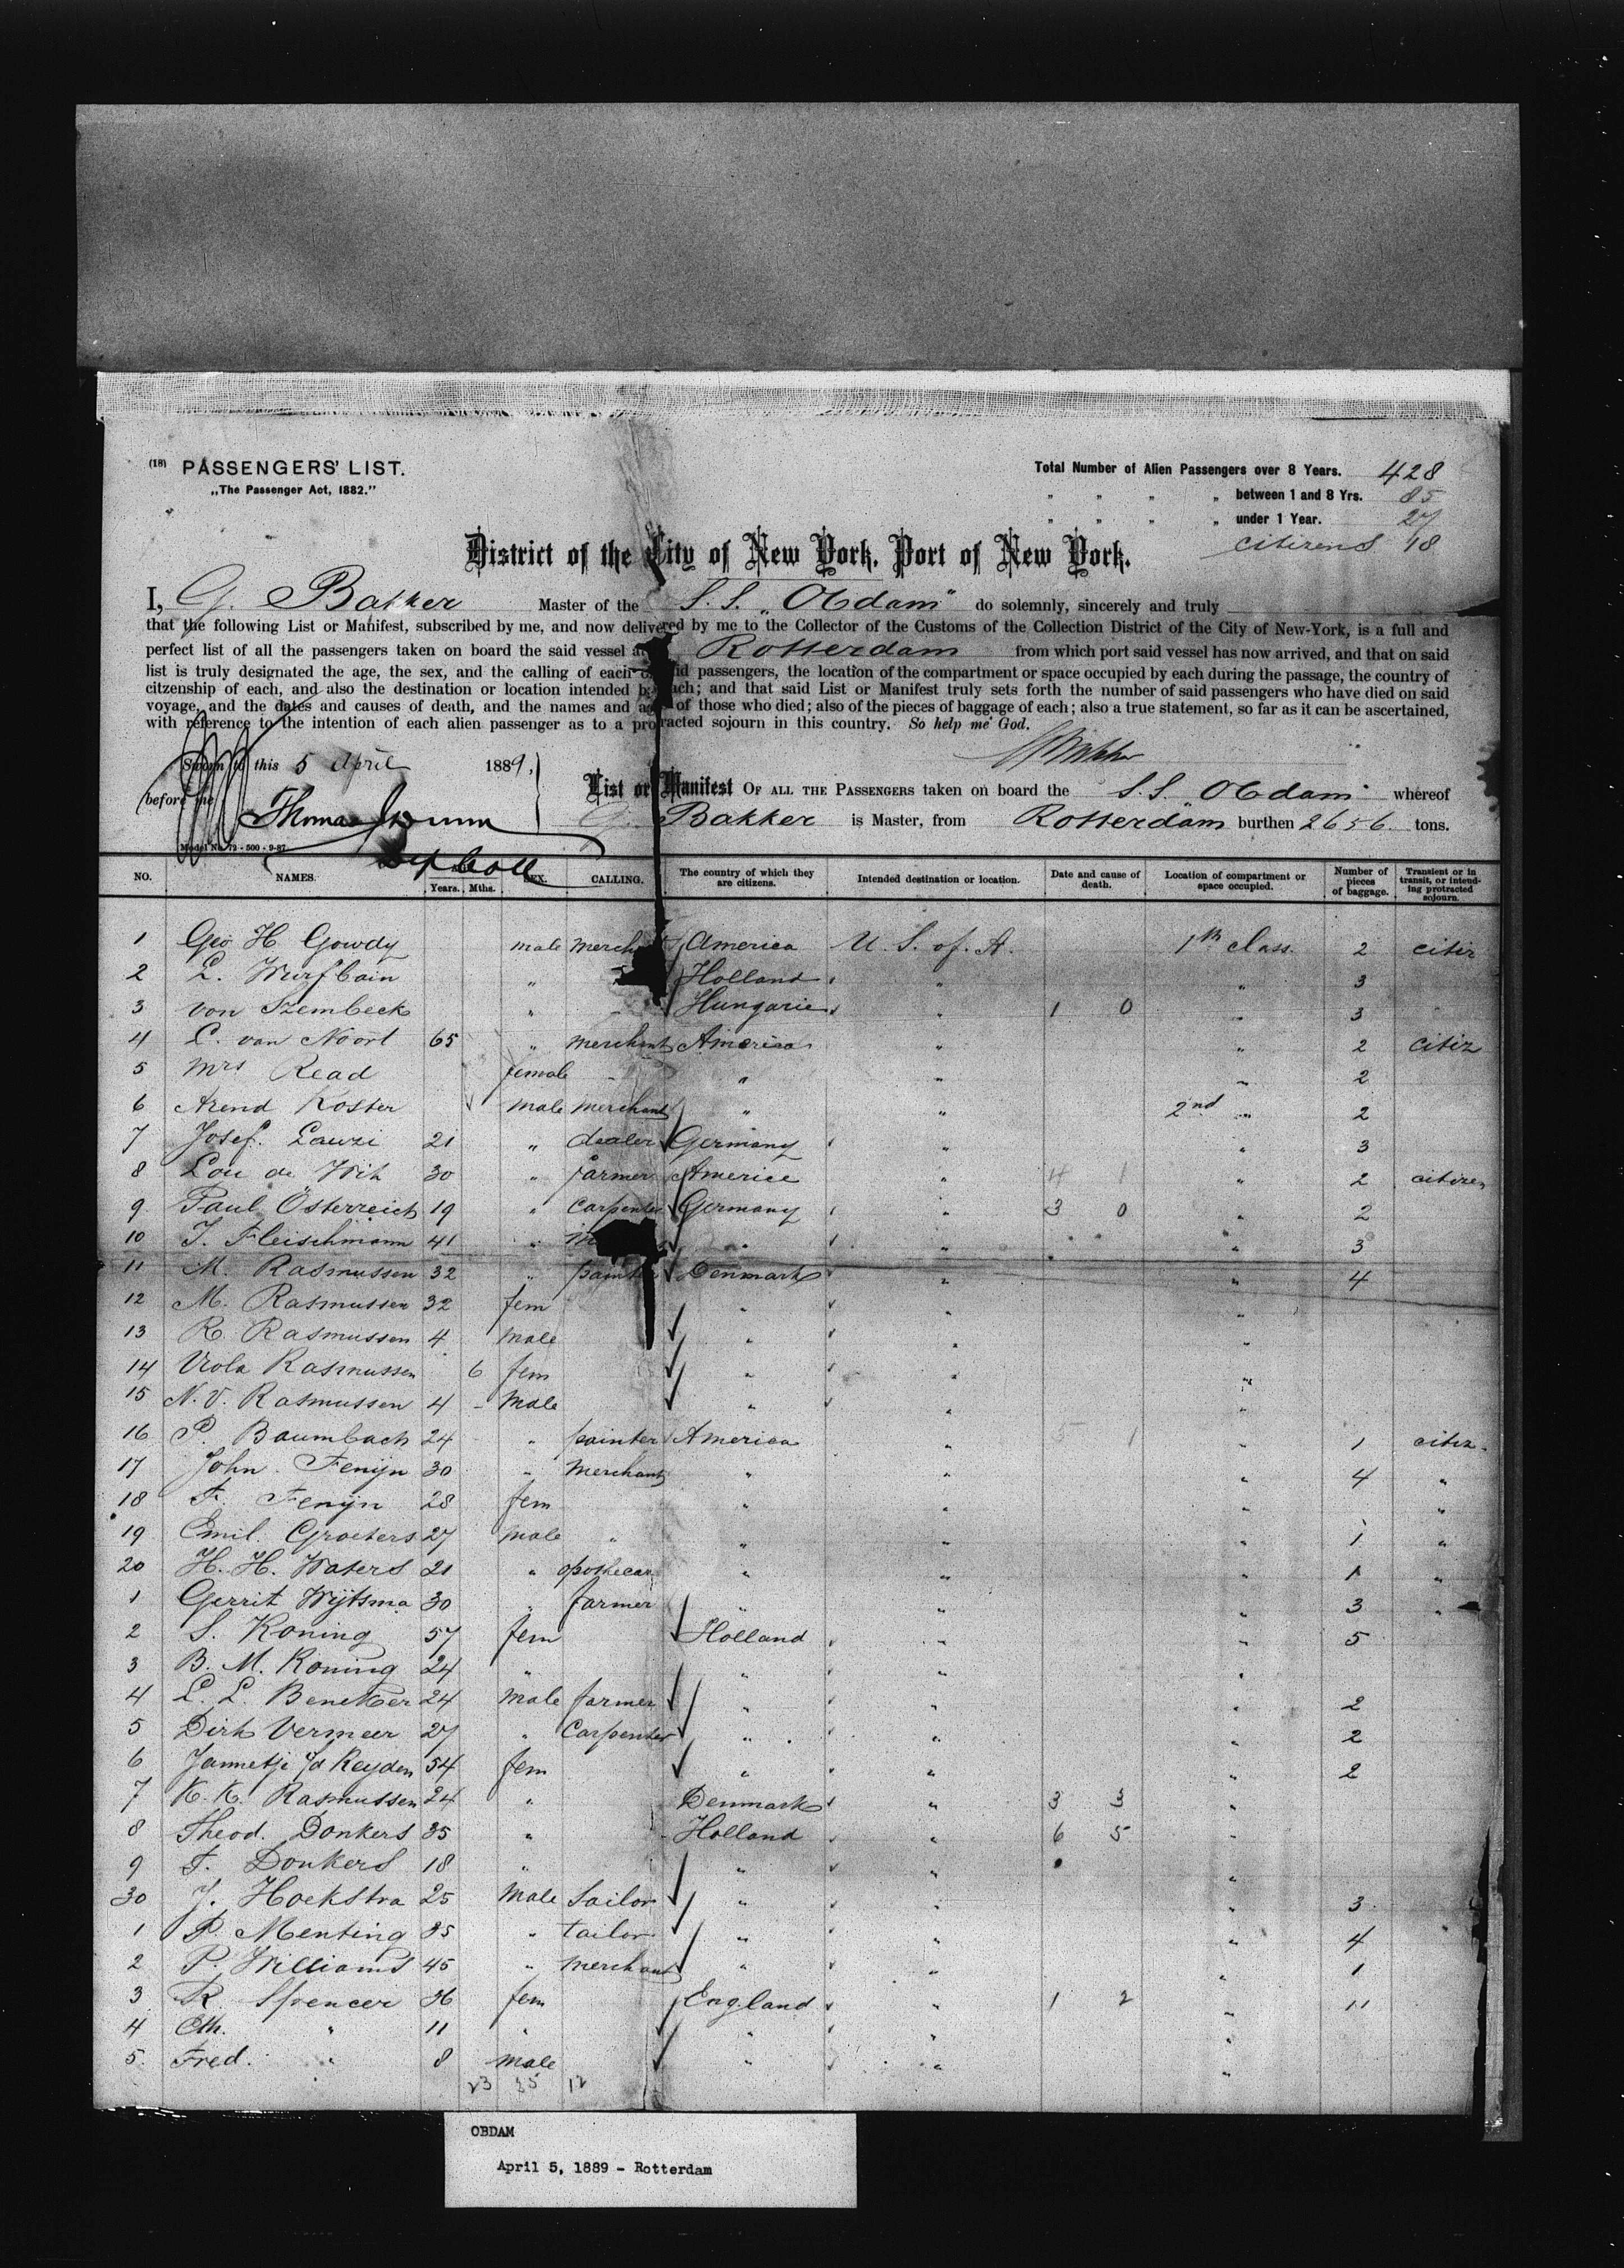 (18) PASSENGERS' LIST.
„The Passenger Act, 1882."
Total Number of Alien Passengers over 8 Years. 428
„ „ „ „ between 1 and 8 Yrs. 85
„ „ „ „ under 1 Year. 27
citizens 18
District of the City of New York, Port of New York.
I, G. Bakker Master of the S. S. „Obdam" do solemnly, sincerely and truly
that the following List or Manifest, subscribed by me, and now delivered by me to the Collector of the Customs of the Collection District of the City of New-York, is a full and
perfect list of all the passengers taken on board the said vessel at Rotterdam from which port said vessel has now arrived, and that on said
list is truly designated the age, the sex, and the calling of each of said passengers, the location of the compartment or space occupied by each during the passage, the country of
citzenship of each, and also the destination or location intended by each; and that said List or Manifest truly sets forth the number of said passengers who have died on said
voyage, and the dates and causes of death, and the names and ages of those who died; also of the pieces of baggage of each; also a true statement, so far as it can be ascertained,
with reference to the intention of each alien passenger as to a protracted sojourn in this country. So help me God.
Sworn to this 5 April 1889,
before me
List or Manifest OF ALL THE PASSENGERS taken on board the S. S. Obdam whereof
G. Bakker is Master, from Rotterdam burthen 2656 tons.
Thomas Dunn
Model No. 72 - 500 - 9-87.
Dep Coll
NO. NAMES. Years. Mths. SEX. CALLING. The country of which they are citizens. Intended destination or location. Date and cause of death. Location of compartment or space occupied. Number of pieces of baggage. Transient or in transit, or intending protracted sojourn.
1 Geo H Gowdy male merchant America U. S. of. A. 1th class. 2 citiz
2 L. Wurfbain „ Holland „ „ 3
3 von Szembeck „ Hungarie „ 1 0 „ 3
4 C. van Noort 65 „ merchant America „ „ 2 citiz
5 Mrs Read female „ „ „ 2
6 Arend Koster male merchant „ „ 2nd „ 2
7 Josef. Lawzi 21 „ dealer Germany „ „ 3
8 Lou de Wit 30 „ farmer America „ 4 1 „ 2 citizen
9. Paul Österreich 19 „ carpenter Germany „ 3 0 „ 2
10 J. Fleischmann 41 „ „ „ „ 3
11 M. Rasmussen 32 „ painter Denmark „ „ 4
12 M. Rasmussen 32 fem „ „ „
13 R. Rasmussen 4 male „ „ „
14 Viola Rasmussen 6 fem „ „ „
15 N. V. Rasmussen 4 - male „ „ „
16 P. Baumbach 24 „ painter America „ 5 1 „ 1 citiz.
17 John Fenijn 30 „ Merchant „ „ „ 4 „
18 F. Fenijn 28 fem „ „ „ „
19 Emil. Groeters 27 male „ „ „ „ 1 „
20 H. H. Waters 21 „ apothecar „ „ „ 1 „
1 Gerrit Wijtsma 30 „ farmer „ „ „ 3 „
2 S. Koning 57 fem Holland „ „ 5
3 B. M. Koning 24 „ „ „ „
4 L. L. Beneker 24 male farmer „ „ „ 2
5 Dirk Vermeer 27 „ Carpenter „ „ „ 2
6 Jannetji v/d Keyden 54 fem „ „ „ 2
7 K. K. Rasmussen 24 „ Denmark „ 3 3 „
8 Theod. Donkers 35 „ Holland „ 6 5 „
9 F. Donkers 18 „ „ „ „
30 J. Hoekstra 25 Male Sailor „ „ „ 3.
1 P. Menting 35 „ tailor „ „ „ 4
2 P. Williams 45 „ merchant „ „ „ 1
3 R. Spencer 36 fem England „ 1 2 „ 11
4 Eth. „ 11 „ „ „ „
5. Fred. „ 8 male „ „ „
23 35 12
OBDAM
April 5, 1889 - Rotterdam